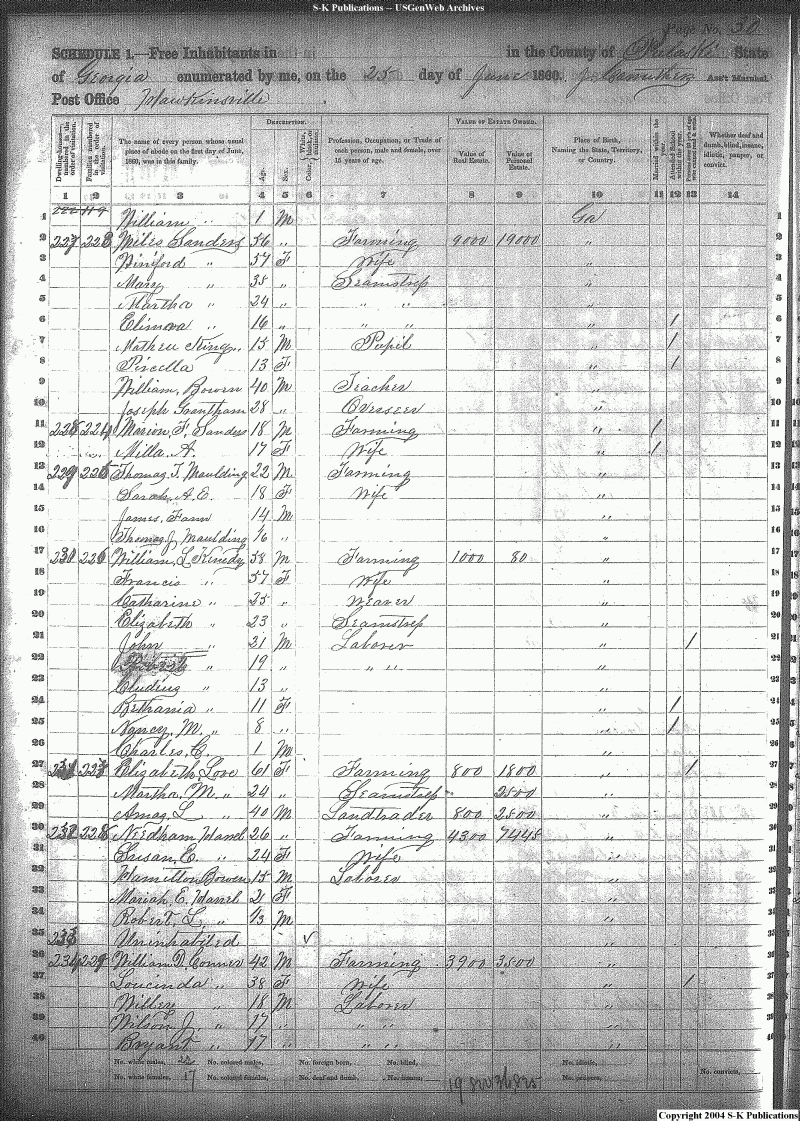 S-K Publications -- USGenWeb Archives
Page No. 30
SCHEDULE 1.—Free Inhabitants in in the County of Pulaski State
of Georgia enumerated by me, on the 25 day of June 1860. Ass't Marshal.
Post Office Hawkinsville
DESCRIPTION. VALUE OF ESTATE OWNED.
Dwelling-houses—numbered in the order of visitation. Families numbered in the order of visitation. The name of every person whose usual place of abode on the first day of June, 1860, was in this family. Age. Sex. Color, White, black, or mulatto. Profession, Occupation, or Trade of each person, male and female, over 15 years of age. Value of Real Estate. Value of Personal Estate. Place of Birth, Naming the State, Territory, or Country. Married within the year. Attended School within the year. Persons over 20 y'rs of age who cannot read & write. Whether deaf and dumb, blind, insane, idiotic, pauper, or convict.
1 2 3 4 5 6 7 8 9 10 11 12 13 14
1 William " 1 M Ga 1
2 227 223 Miles Sanders 56 " Farming 9000 19000 " 2
3 Winiford " 57 F Wife " 3
4 Mary " 35 " Seamstress " 4
5 Martha " 24 " " " " 5
6 Elinova " 16 " " " " / 6
7 Mathew King " 15 M Pupil " / 7
8 Pircella 13 F " / 8
9 William Bowen 40 M Teacher " 9
10 Joseph Grantham 28 " Overseer " 10
11 228 224 Marion F. Sanders 18 M Farming " / 11
12 " " Milla A. 17 F Wife " / 12
13 229 225 Thomas T. Maulding 22 M Farming " 13
14 Sarah A. E. 18 F Wife " 14
15 James Fann 14 M " 15
16 Thomas J. Maulding 16 " " 16
17 230 226 William L. Kinedy 58 M Farming 1000 80 " 17
18 Francis " 57 F Wife " 18
19 Catharine " 25 " Weaver " 19
20 Elizabeth " 23 " Seamstress " 20
21 John " 21 M Laborer " / 21
22 " 19 " " " " 22
23 " 13 " " 23
24 Bethania " 11 F " / 24
25 Nancy M. " 8 " " / 25
26 Charles C. 1 M " 26
27 231 227 Elizabeth Love 61 F Farming 800 1800 " / 27
28 Martha M. " 24 " Seamstress 2500 " 28
29 Amaz L " 40 M Landtrader 800 2500 " 29
30 232 228 Needham Harrel 26 " Farming 4300 7445 " 30
31 Susan E. " 24 F Wife " 31
32 Hamilton Bowen 15 M Laborer " 32
33 Mariah E. Harrel 2 F " 33
34 Robert L. " /3 M " 34
35 233 Uninhabited 35
36 234 229 William D. Conner 42 M Farming 3900 3500 " 36
37 Loucinda " 38 F Wife " / 37
38 Willey " 18 M Laborer " 38
39 Wilson J. " 17 " " " " 39
40 Bryant " 17 " " " " 40
No. white males, 22 No. colored males, No. foreign born, No. blind, No. idiotic,
No. white females, 17 No. colored females, No. deaf and dumb, No. insane, No. paupers, No. convicts,
Copyright 2004 S-K Publications